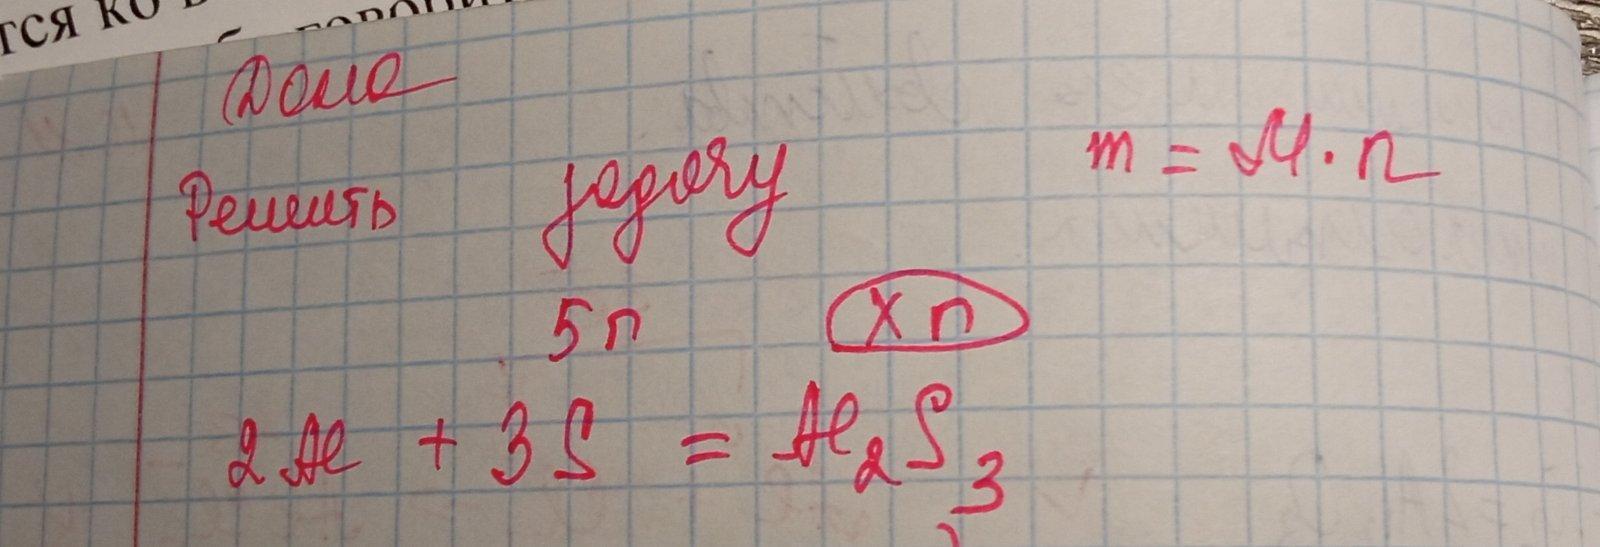 тся ко в
Дома
Решить задачу
m = M · n
5 n x n
2 Al + 3 S = Al₂S₃